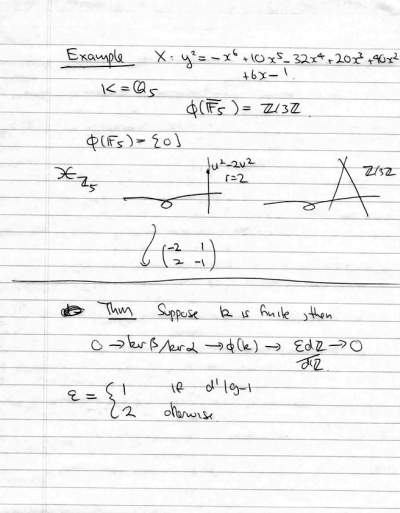 Example X: y² = -x⁶ + 10x⁵ - 32x⁴ + 20x³ + 40x²
+ 6x - 1
K = ℚ₅
Φ(𝔽̄₅) = ℤ/3ℤ
Φ(𝔽₅) = {0}
𝒳_ℤ₅ u² - 2v² ℤ/3ℤ
r = 2
(-2 1
2 -1)
Thm Suppose k is finite, then
0 → ker β/ker α → Φ(k) → εdℤ/dℤ → 0
ε = { 1 if d' | g-1
2 otherwise